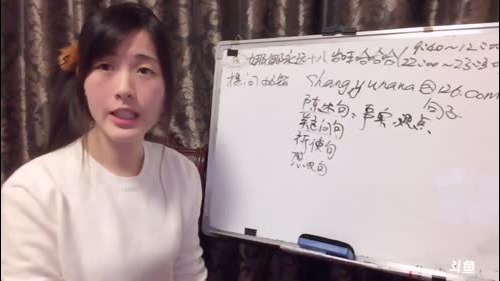 娜娜永远十八岁哈哈哈(9:00~12:00
(22:00~23:30
提问邮箱 Shangyunana@126.com
陈述句:事实、观点
句子
疑问句
祈使句
感叹句
斗鱼